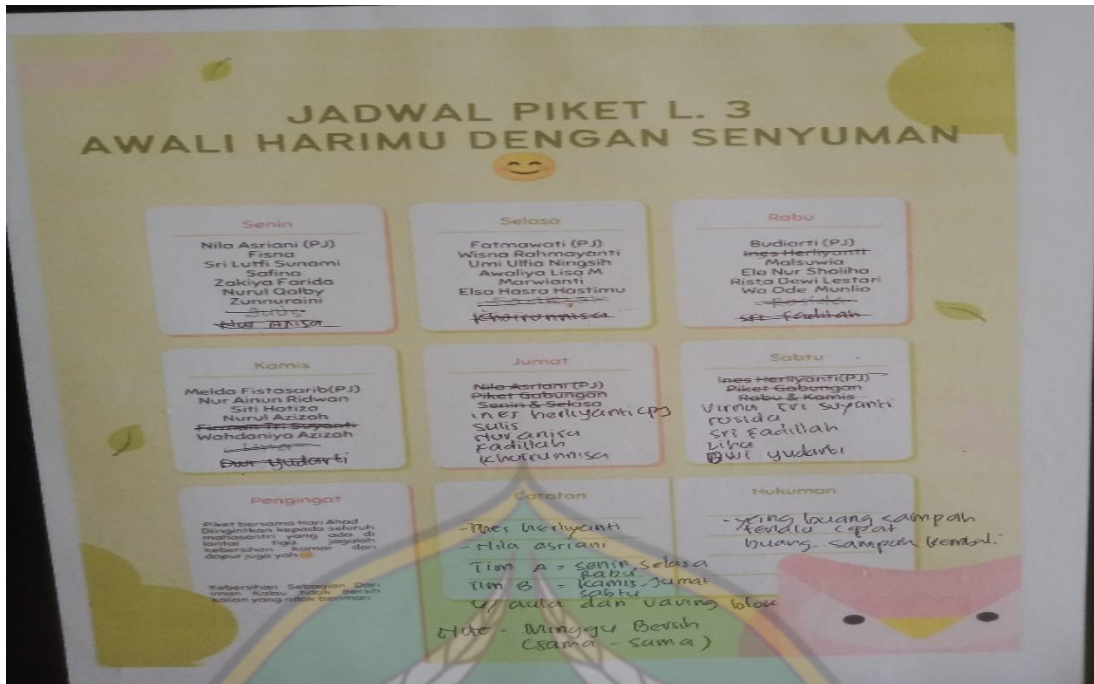 JADWAL PIKET L. 3
AWALI HARIMU DENGAN SENYUMAN
Senin
Nila Asriani (PJ)
Fisna
Sri Lutfi Sunami
Safina
Zakiya Farida
Nurul Qalby
Zunnuraini
Nur Anisa
Selasa
Fatmawati (PJ)
Wisna Rahmayanti
Umi Ulfia Ningsih
Awaliya Lisa M
Marwianti
Elsa Hasra Hastimu
Khoirunnisa
Rabu
Budiarti (PJ)
Ines Herliyanti
Malsuwia
Ela Nur Sholiha
Rista Dewi Lestari
Wa Ode Munlia
Rosida
Sri Fadilah
Kamis
Melda Fistasarib(PJ)
Nur Ainun Ridwan
Siti Hotiza
Nurul Azizah
Tri Suyanti
Wahdaniya Azizah
Dwi Yudarti
Jumat
Nila Asriani (PJ)
Piket Gabungan
Senin & Selasa
ines herliyanti (PJ
Sulis
Nur anisa
Fadillah
Khoirunnisa
Sabtu
Ines Herliyanti(PJ)
Piket Gabungan
Rabu & Kamis
Tri Suyanti
rosida
Sri Fadillah
Dwi yudarti
Pengingat
Piket bersama Hari Ahad
Diingintkan kepada seluruh
mahasantri yang ada di
lantai tiga jagalah
kebersihan kamar dan
dapur juga yah
Kebersihan Sebagian Dari
Iman Kalau Tidak Bersih
kalian yang tidak beriman
Catatan
- Ines herliyanti
- Nila asriani
Tim A = senin, selasa
rabu
Tim B = kamis, Jumat
sabtu
aula dan vaving blok
Note - Minggu Bersih
(sama - sama)
Hukuman
- yang buang sampah
buang sampah kembali